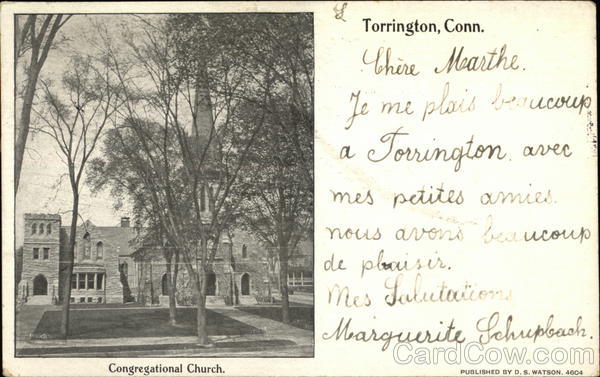 Torrington, Conn.
Chère Marthe.
Je me plais beaucoup
a Torrington, avec
mes petites amies.
nous avons beaucoup
de plaisir.
Mes Salutations
Marguerite Schupbach.
Congregational Church.
PUBLISHED BY D. S. WATSON. 4604
CardCow.com